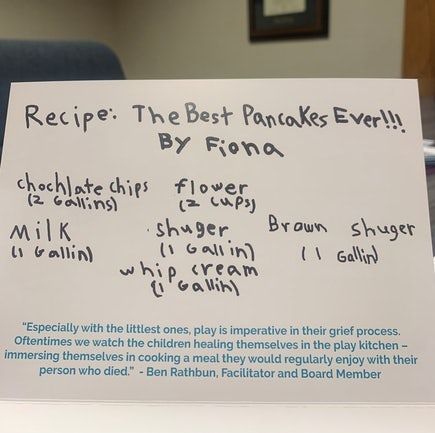 Recipe: The Best Pancakes Ever!!!
By Fiona
chochlate chips flower
(2 Gallins) (2 cups)
Milk shuger Brown shuger
(1 Gallin) (1 Gallin) (1 Gallin)
whip cream
(1 Gallin)
"Especially with the littlest ones, play is imperative in their grief process.
Oftentimes we watch the children healing themselves in the play kitchen –
immersing themselves in cooking a meal they would regularly enjoy with their
person who died." - Ben Rathbun, Facilitator and Board Member